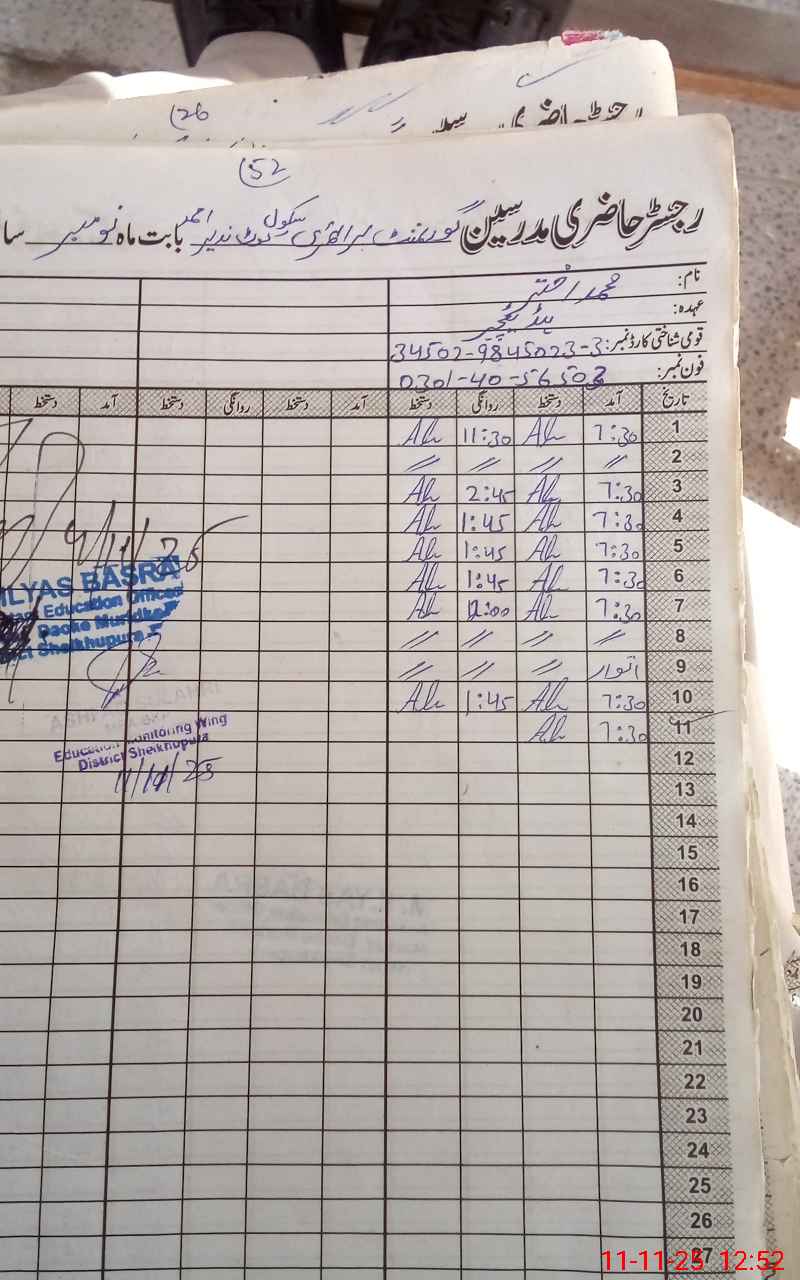 26
رجسٹر حاضری مدرسین
52
رجسٹر حاضری مدرسین گورنمنٹ پرائمری سکول کوٹ نذیر احمد بابت ماہ نومبر سا
نام: محمد اختر
عہدہ: ہیڈ ٹیچر
قومی شناختی کارڈ نمبر: 34502-9845023-3
فون نمبر: 0301-40-56503
تاریخ آمد دستخط روانگی دستخط آمد دستخط روانگی دستخط آمد دستخط
1 7:30 Ah 11:30 Ah
2 〃 〃 〃 〃
3 7:30 Ah 2:45 Ah
4 7:30 Ah 1:45 Ah
5 7:30 Ah 1:45 Ah
6 7:30 Ah 1:45 Ah
7 7:30 Ah 12:00 Ah
8 〃 〃 〃 〃
9 اتوار 〃 〃 〃
10 7:30 Ah 1:45 Ah
11 7:30 Ah
12
13
14
15
16
17
18
19
20
21
22
23
24
25
26
27
ILYAS BASRA
Education Officer
Daoke Muridke
Sheikhupura
Education Monitoring Wing
District Sheikhupura
11/11/25
11-11-25 12:52